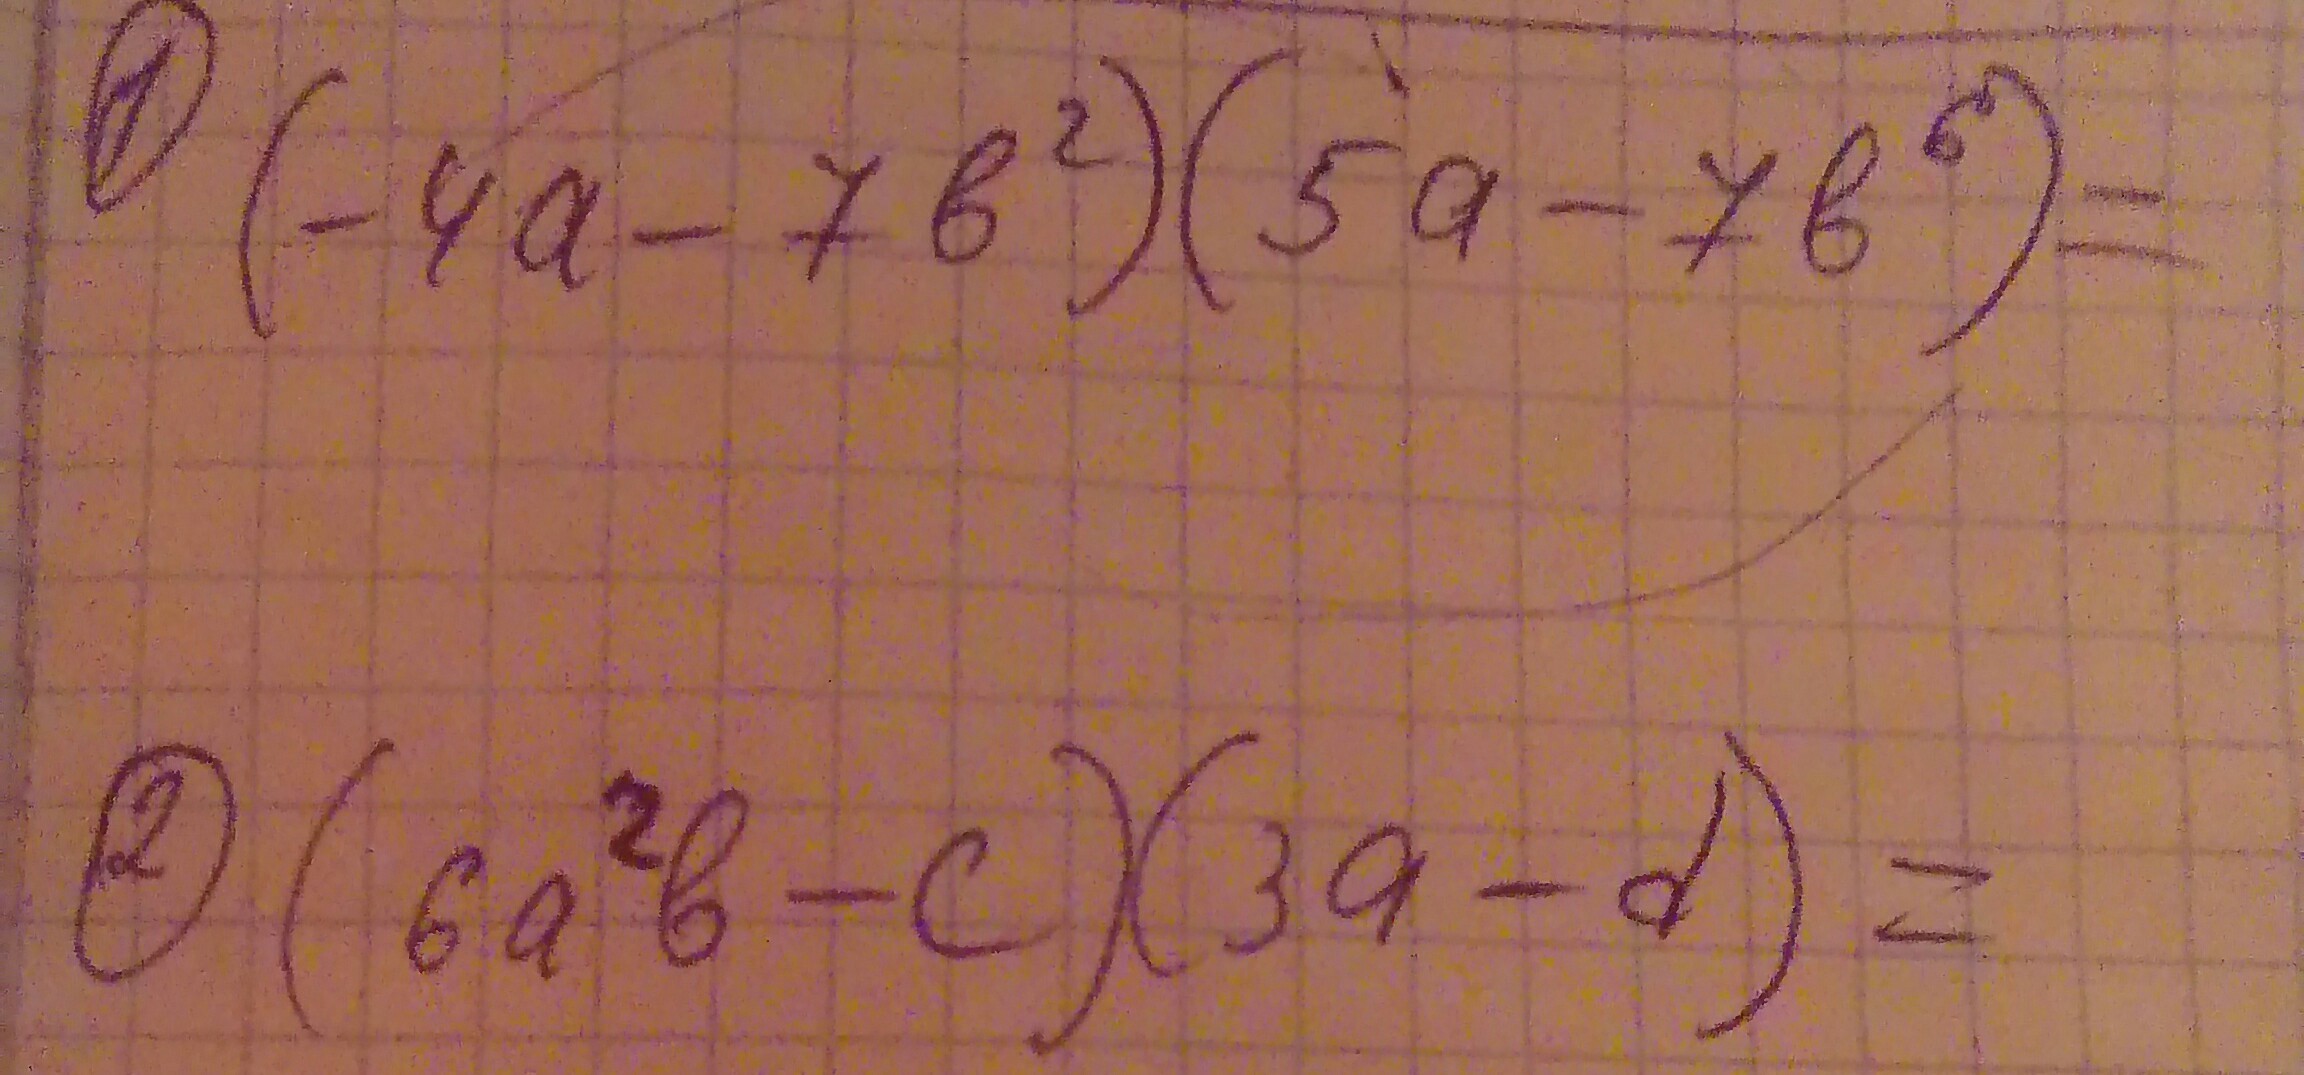 ① (-4a-7b²)(5a-7b⁶)=
② (6a²b-c)(3a-d)=